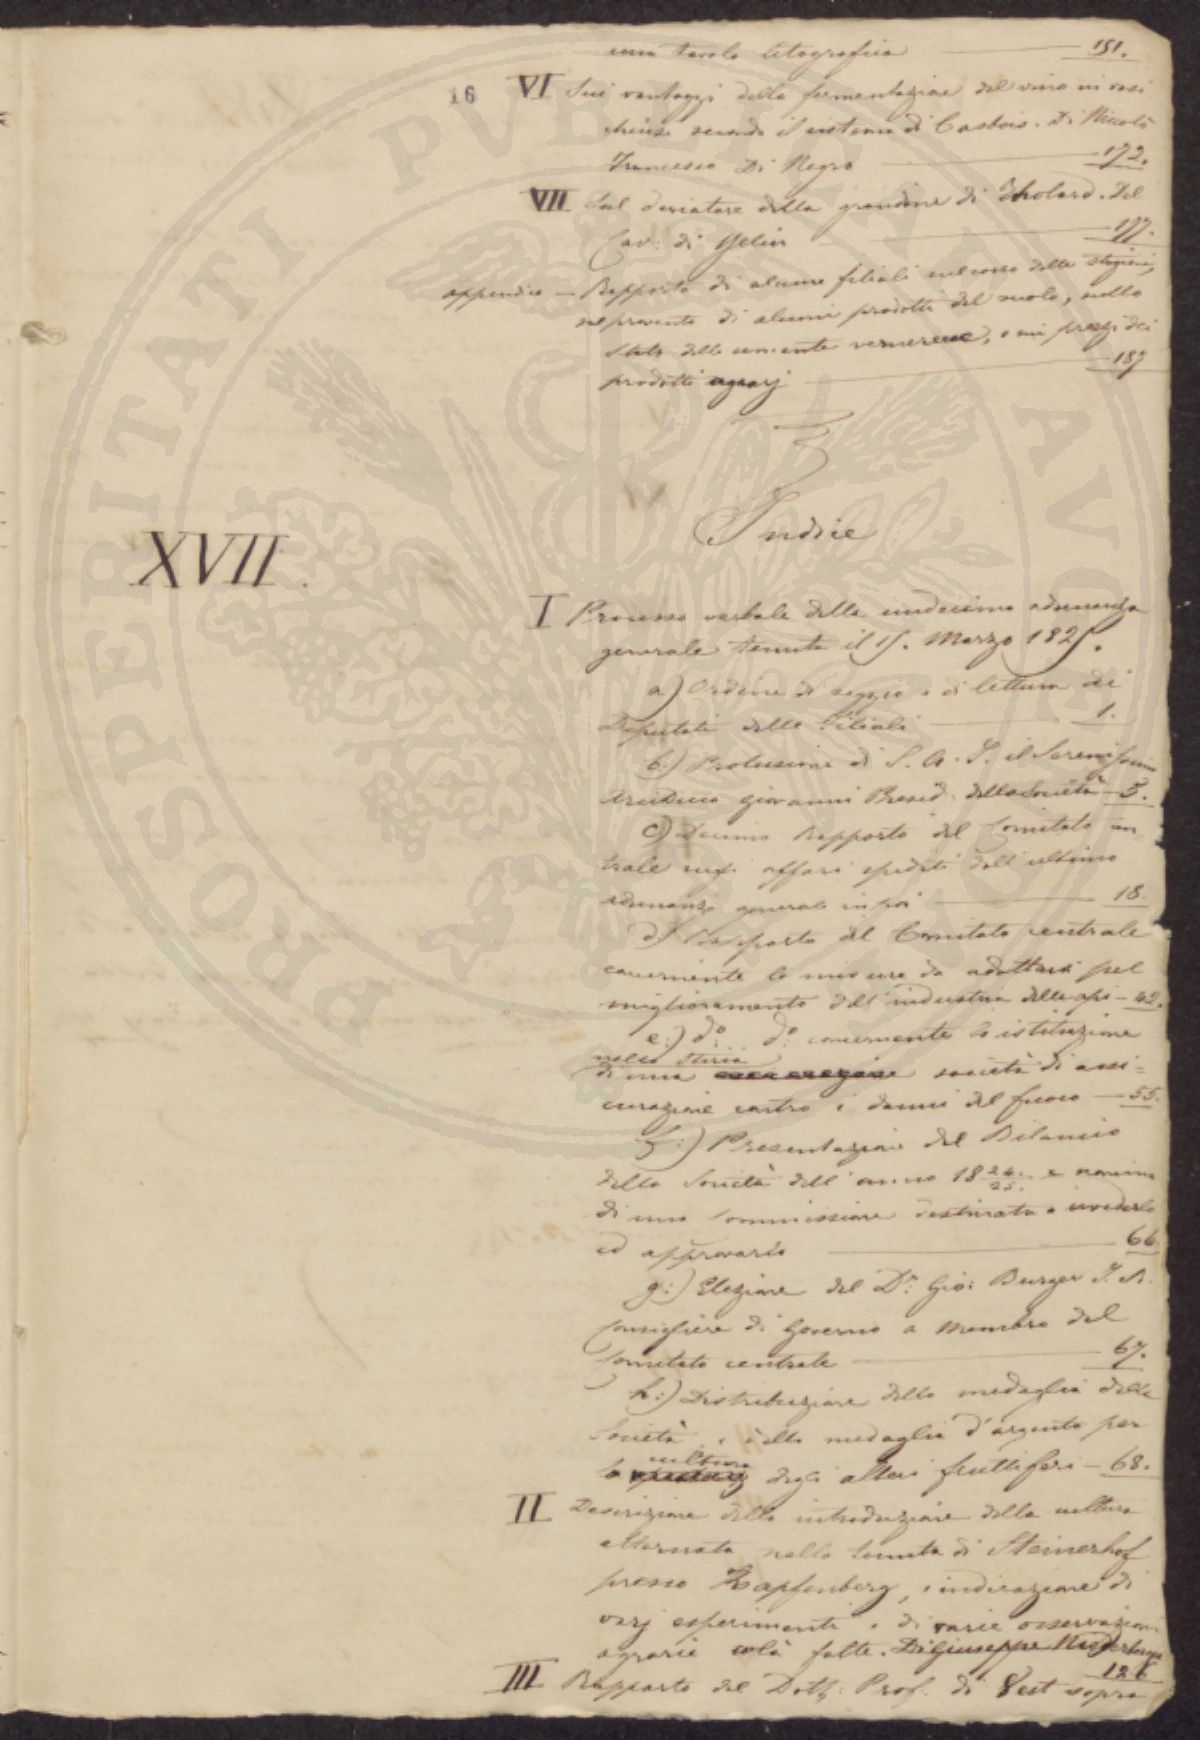 con tavola litografica 151.
16 VI Sui vantaggi della fermentazione del vino in vasi
chiusi secondo il sistema di Casbois. Di Niccolò
Francesco Di Negro 172.
VII Sul deviatore della grandine di Tholard. Del
Cav: di Gelin 177.
appendice — Rapporto di alcune filiali sul corso delle stagioni,
sul provento di alcuni prodotti del suolo, sullo
stato delle sementa vernerecce, e sui prezzi dei
prodotti agrarj 187
Indice
XVII.
I Processo verbale della undecima adunanza
generale tenuta il 15. Marzo 1825.
a) Ordine di seggio e di lettura dei
Deputati delle Filiali 1.
b.) Prolusione di S. A. I. il Serenissimo
Arciduca Giovanni Presid. della Società 5.
c) Decimo Rapporto del Comitato cen
trale sugli affari spediti dall'ultima
adunanza generale in poi 18
d) Rapporto del Comitato centrale
concernente le misure da adottarsi pel
miglioramento dell'industria delle api — 42.
e.) do do concernente la istituzione
nella Stiria
di una società di assi=
curazione contro i danni del fuoco — 55.
f:) Presentazione del Bilancio
della Società dell'anno 18 24/25. e nomina
di una Commissione destinata a rivederlo
ed approvarlo 66
g:) Elezione del Dr: Gio: Burger I. R.
Consigliere di Governo a membro del
Comitato centrale 67.
h:) Distribuzione della medaglia della
Società, e della medaglia d'argento per
cultura
la degli alberi fruttiferi — 68.
II Descrizione della introduzione della cultura
alternata nella tenuta di Steinerhof
presso Kapfenberg, e indicazione di
varj esperimenti e di varie osservazioni
agrarie colà fatte. Di Giuseppe
126
III Rapporto del Dott: Prof. di Vest sopra
PROSPERITATI PUBLICAE